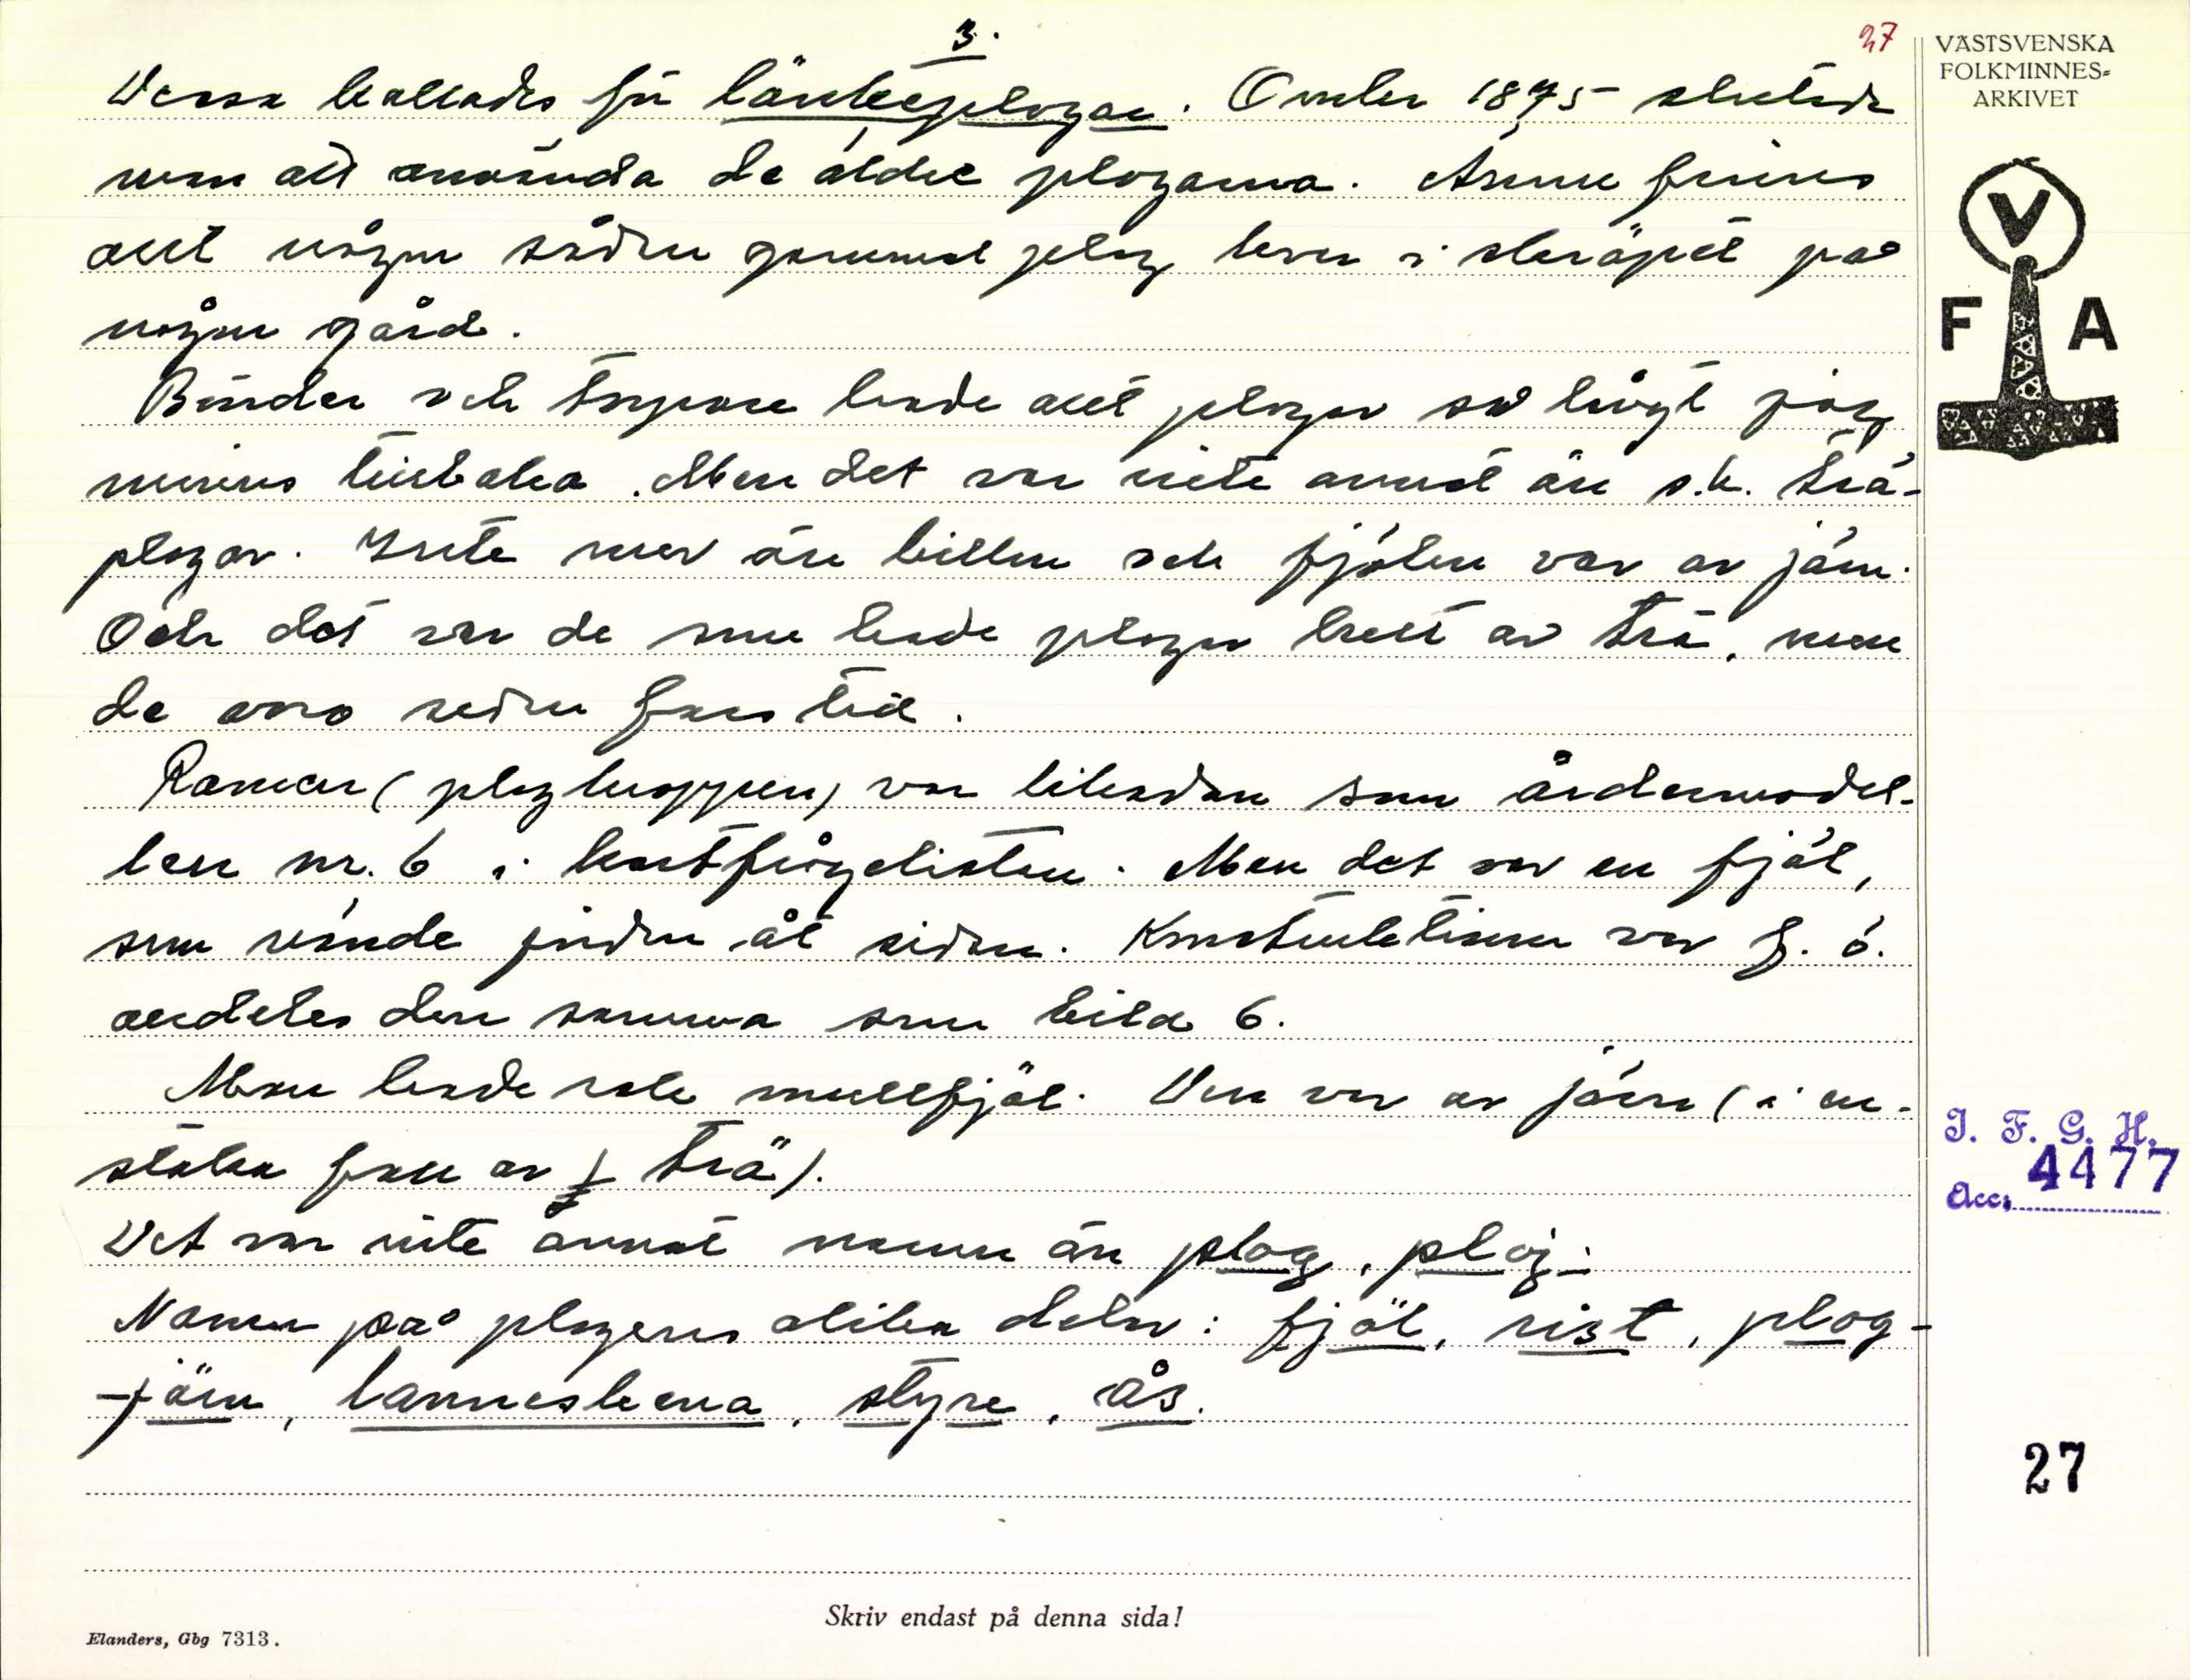 3.
27
Dessa kallades för länkeplogar. Omkr 1875 slutade
man att använda de äldre plogarna. Ännu finnes
allt någon sådan gammal plog kvar i skräpet på
någon gård.
Bönder och torpare hade allt plogar så långt jag
minns tillbaka. Men det var inte annat än s.k. trä-
plogar. Inte mer än billen och fjölen var av järn.
Och det var de som hade plogar helt av trä, men
de voro redan fåtal.
Ramen (plogkroppen) var likadan som årdermodel-
len nr. 6 i kortfrågelistan. Men det var en fjöl,
som vände jorden åt sidan. Konstruktionen var f. ö.
alldeles den samma som bild 6.
Man hade sale mullfjöl. Den var av järn (i en-
staka fall av trä).
Det var inte annat namn än plog, ploj.
Namn på plogens olika delar: fjöl, rist, plog-
-järn, lannesleena, styre, ås.
VÄSTSVENSKA
FOLKMINNES=
ARKIVET
V
F A
I. F. G. H.
4477
Acc.
27
Skriv endast på denna sida!
Elanders, Gbg 7313.